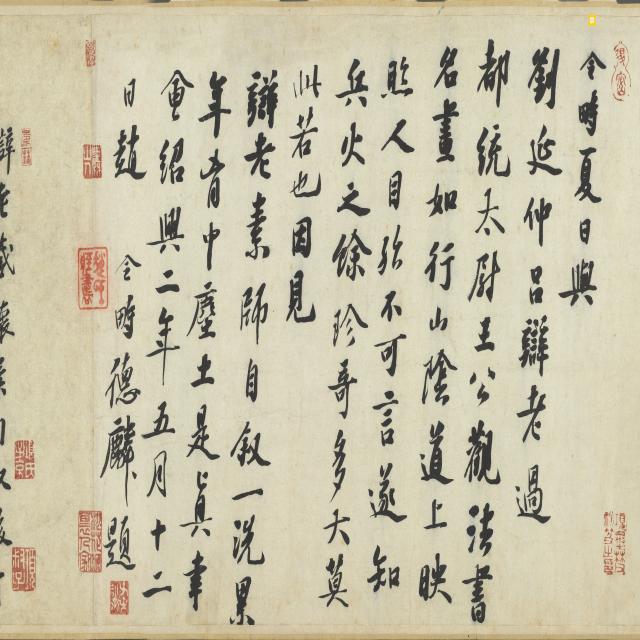 令時夏日與
劉延仲呂辯老過
都統太尉王公觀法書
名畫如行山陰道上映
照人目殆不可言遂知
兵火之餘珍奇多大莫
此若也因見
辯老素師自叙一洗累
年胷中塵土是真幸
會紹興二年五月十二
日趙令時德麟題